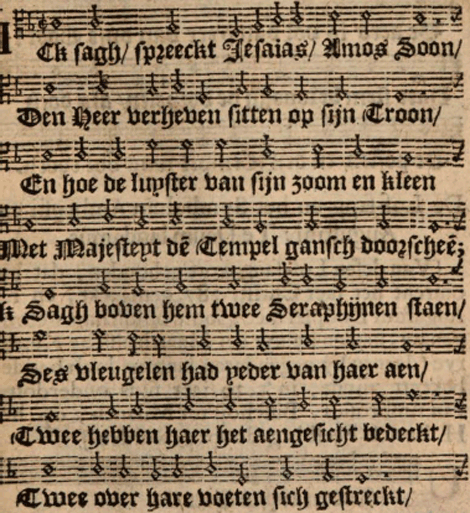 Ick sagh/ spreeckt Jesaias/ Amos Soon/
Den Heer verheven sitten op sijn Troon/
En hoe de luyster van sijn zoom en kleen
Met Majesteyt dē Tempel gansch doorscheē;
Ick Sagh boven hem twee Seraphijnen staen/
Ses vleugelen had yeder van haer aen/
Twee hebben haer het aengesicht bedeckt/
Twee over hare voeten sich gestreckt/